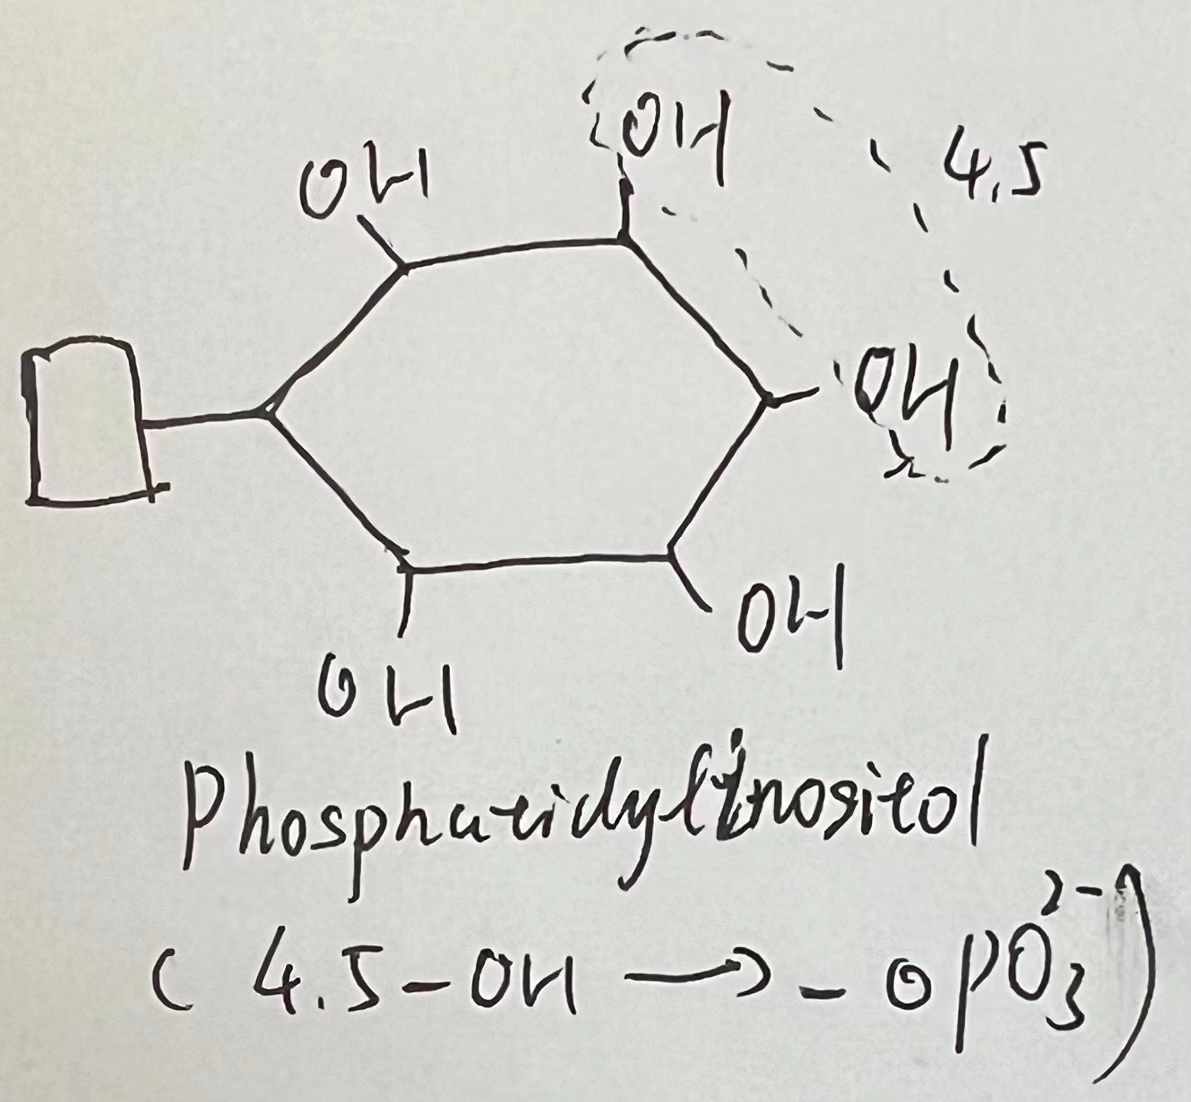 OH
OH
4,5
OH
OH
OH
Phosphatidylinositol
( 4.5-OH → - OPO₃²⁻)